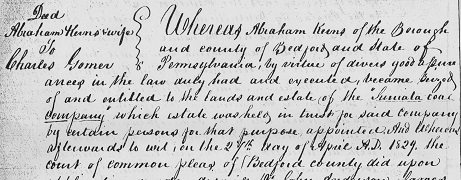 Deed
Abraham Kerns & wife
To
Charles Gomer
Whereas Abraham Kerns of the Borough
and county of Bedford and State of
Pennsylvania, by virtue of divers good assur
ances in the law duly had and executed, became seized
of and entitled to the lands and estate of the "Sumata coal
Company" which estate was held in trust for said company
by certain persons for that purpose appointed And Whereas
afterwards to wit, on the 27th day of April A.D. 1829. the
court of common pleas of Bedford county did upon